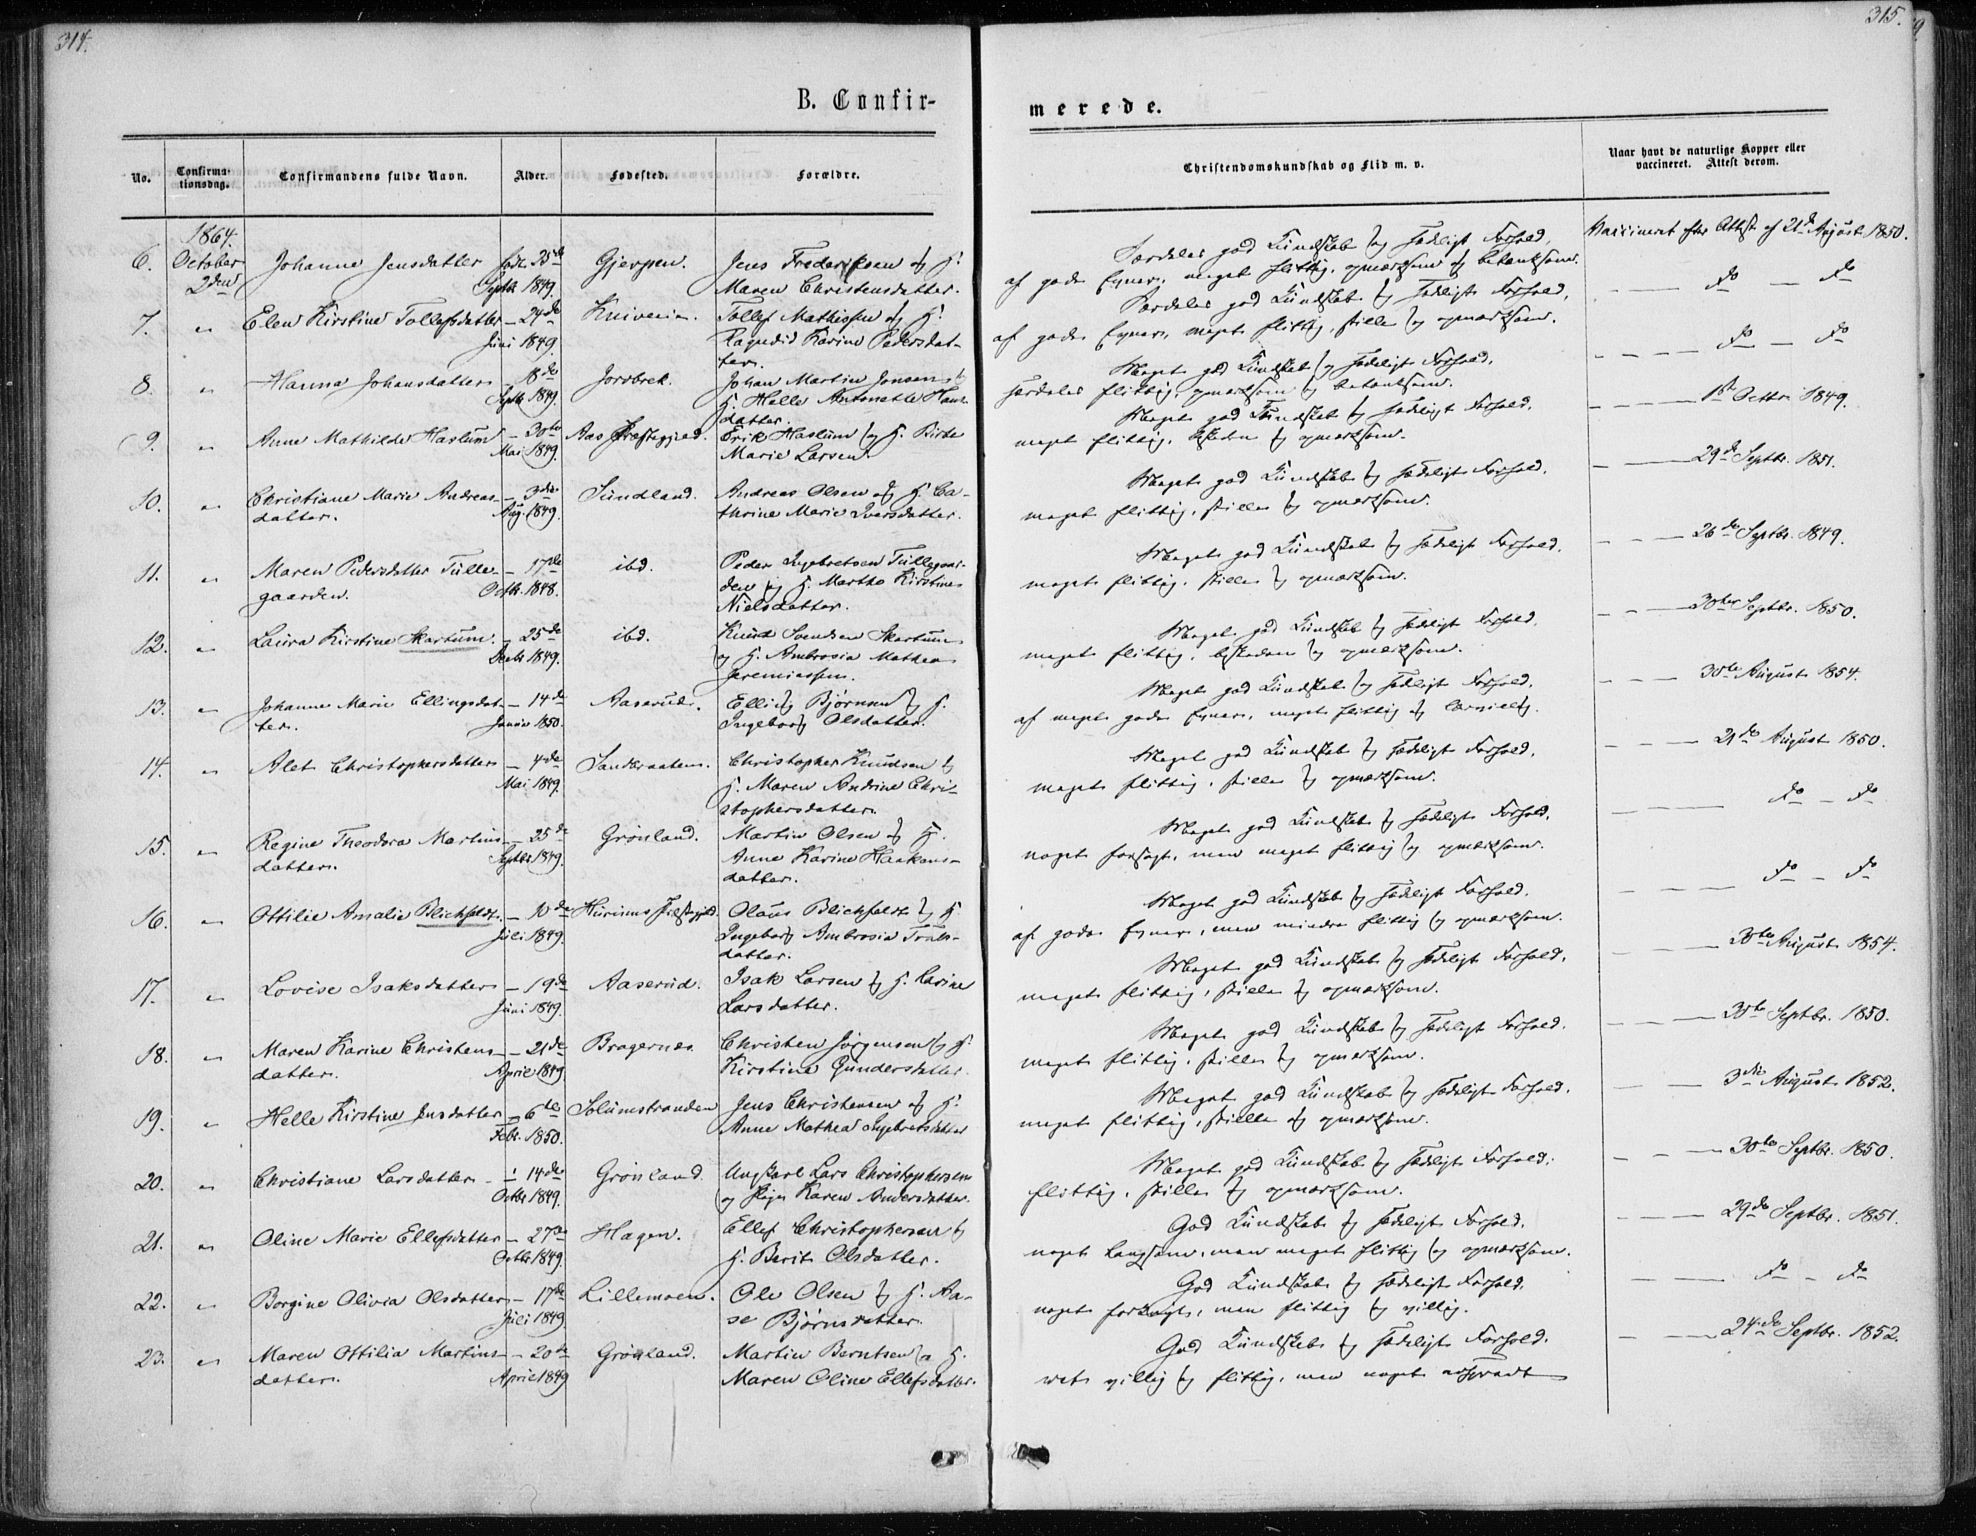 314.
315.
B. Confir-
merede.
No.
Confirma-
tionsdag.
Confirmandens fulde Navn.
Alder.
Fødested.
Forældre.
Christendomskundskab og Flid m. v.
Naar havt de naturlige Kopper eller
vaccineret. Attest derom.
1864.
6. October Johanne Jensdatter født 25de Gjerpen. Jens Frederiksen og H.
2den Septbr 1849. Maren Christensdatter.
Særdeles god Kundskab og sædeligt Forhold,
af gode Evner, meget flittig, opmærksom og betænksom.
Vaccineret efter Attest af 21de August 1850.
7. " Elen Kirstine Tollefsdatter – 24de Tollef Mathisen og H.
Juni 1849. Ragndid Karine Pedersdat-
ter.
Særdeles god Kundskab og sædeligt Forhold,
af gode Evner, meget flittig, stille og opmærksom.
– — do — do
8. " Hanna Johansdatter 18de Johan Martin Jensen og
Septbr 1849. H. Helle Antonette Hans-
datter.
Meget god Kundskab og sædeligt Forhold,
særdeles flittig, opmærksom og betænksom.
– – — do — do
9. " Anne Mathilde Haslum – 30te Aas Præstegjeld. Erik Haslum og H. Birte
Mai 1849. Marie Larsen.
Meget god Kundskab og sædeligt Forhold,
meget flittig, beskeden og opmærksom.
– – — 1ste Octbr. 1849.
10. " Christiane Marie Andreas- – 3die Sundland. Andreas Olsen og H. Ca-
datter. Aug. 1849. thrine Marie Iversdatter.
Meget god Kundskab og sædeligt Forhold,
meget flittig, stille og opmærksom.
– — 29de Septbr. 1851.
11. " Maren Pedersdatter Tulle- – 17de ibd. Peder Ingebretsen Tullegaar-
gaarden. Octbr. 1848. den og H. Marthe Kirstine
Nielsdatter.
Meget god Kundskab og sædeligt Forhold,
meget flittig, stille og opmærksom.
– – — 26de Septbr. 1849.
12. " Laura Kirstine Skartum. – 25de ibd. Knud Svendsen Skartum
Decbr 1849. og H. Ambrosia Mathea
Jeremiassen.
Meget god Kundskab og sædeligt Forhold,
meget flittig, beskeden og opmærksom.
– – — 30te Septbr. 1850.
13. " Johanne Marie Ellingsdat- – 14de Aaserud. Elling Bjørnsen og H.
ter. Januar 1850. Ingeborg Olsdatter.
Meget god Kundskab og sædeligt Forhold,
af meget gode Evner, meget flittig og lærvillig.
– – — 30te August 1854.
14. " Alet Christophersdatter – 4de Christopher Knudsen og
Mai 1849. H. Maren Andrine Chri-
stophersdatter.
Meget god Kundskab og sædeligt Forhold,
meget flittig, stille og opmærksom.
– – — 21de August 1850.
15. " Regine Theodora Martins- – 25de Grønland. Martin Olsen og H.
datter. Septbr 1849. Anne Karine Haakons-
datter.
Meget god Kundskab og sædeligt Forhold,
noget forsagt, men meget flittig og opmærksom.
– – — do – do
16. " Ottilie Amalie Blichfeldt. – 10de Hurums Præstegjeld. Olaus Blichfeldt og H.
Juli 1849. Ingeborg Ambrosia
datter.
Meget god Kundskab og sædeligt Forhold,
af gode Evner, men mindre flittig og opmærksom.
– – — do – do
17. " Lovise Isaksdatter – 19de Aaserud. Isak Larsen og H. Karine
Juni 1849. Larsdatter.
Meget god Kundskab og sædeligt Forhold,
meget flittig, stille og opmærksom.
– — 30te August 1854.
18. " Maren Karine Christens- – 21de Bragernæs. Christen Jørgensen og H.
datter. April 1849. Kirstine Gundersdatter.
Meget god Kundskab og sædeligt Forhold.
meget flittig, stille og opmærksom.
– – — 30te Septbr. 1850.
19. " Helle Kirstine Jensdatter – 6te Solumstranden Jens Christensen og H.
Febr. 1850. Anne Mathea Ingebretsdatter
Meget god Kundskab og sædeligt Forhold.
meget flittig, stille og opmærksom.
– — 3die August 1852.
20. " Christiane Larsdatter – 14de Grønland. Ungkarl Lars Christophersen
Octbr 1849. og Pigen Karen Andersdatter.
Meget god Kundskab og sædeligt Forhold.
flittig, stille og opmærksom.
– – — 30te Septbr. 1850.
21. " Oline Marie Ellefsdatter – 27de Hagen. Ellef Christophersen og
Octbr 1849. H. Berit Olsdatter.
God Kundskab og sædeligt Forhold.
noget langsom, men meget flittig og opmærksom.
– — 29de Septbr. 1851.
22. " Borgine Olivia Olsdatter – 17de Lillemoen. Ole Olsen og H. Aa-
Juli 1849 se Bjørnsdatter.
God Kundskab og sædeligt Forhold,
noget forsagt, men flittig og villig.
– — do – do
23. " Maren Ottilia Martins- – 20de Grønland. Martin Berntsen og H.
datter. April 1849 Maren Oline Ellefsdatter.
God Kundskab og sædeligt Forhold.
ret villig og flittig, men noget adspredt
– — 24de Septbr. 1852.